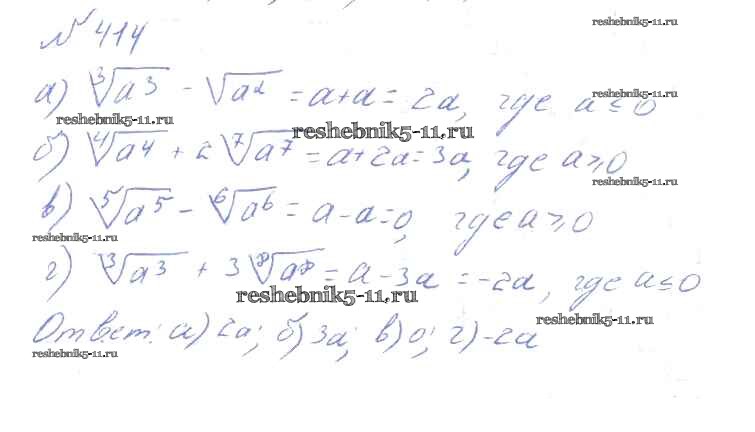 № 414
reshebnik5-11.ru
а) ∛a³ - √a² = a+a = 2a, где a ≤ 0
reshebnik5-11.ru
reshebnik5-11.ru
reshebnik5-11.ru
б) ⁴√a⁴ + 2 ⁷√a⁷ = a+2a = 3a, где a ≥ 0
reshebnik5-11.ru
в) ⁵√a⁵ - ⁶√a⁶ = a - a = 0, где a ≥ 0
reshebnik5-11.ru
г) ∛a³ + 3 ⁸√a⁸ = a - 3a = -2a, где a ≤ 0
reshebnik5-11.ru
reshebnik5-11.ru
Ответ: а) 2a; б) 3a; в) 0; г) -2a
reshebnik5-11.ru